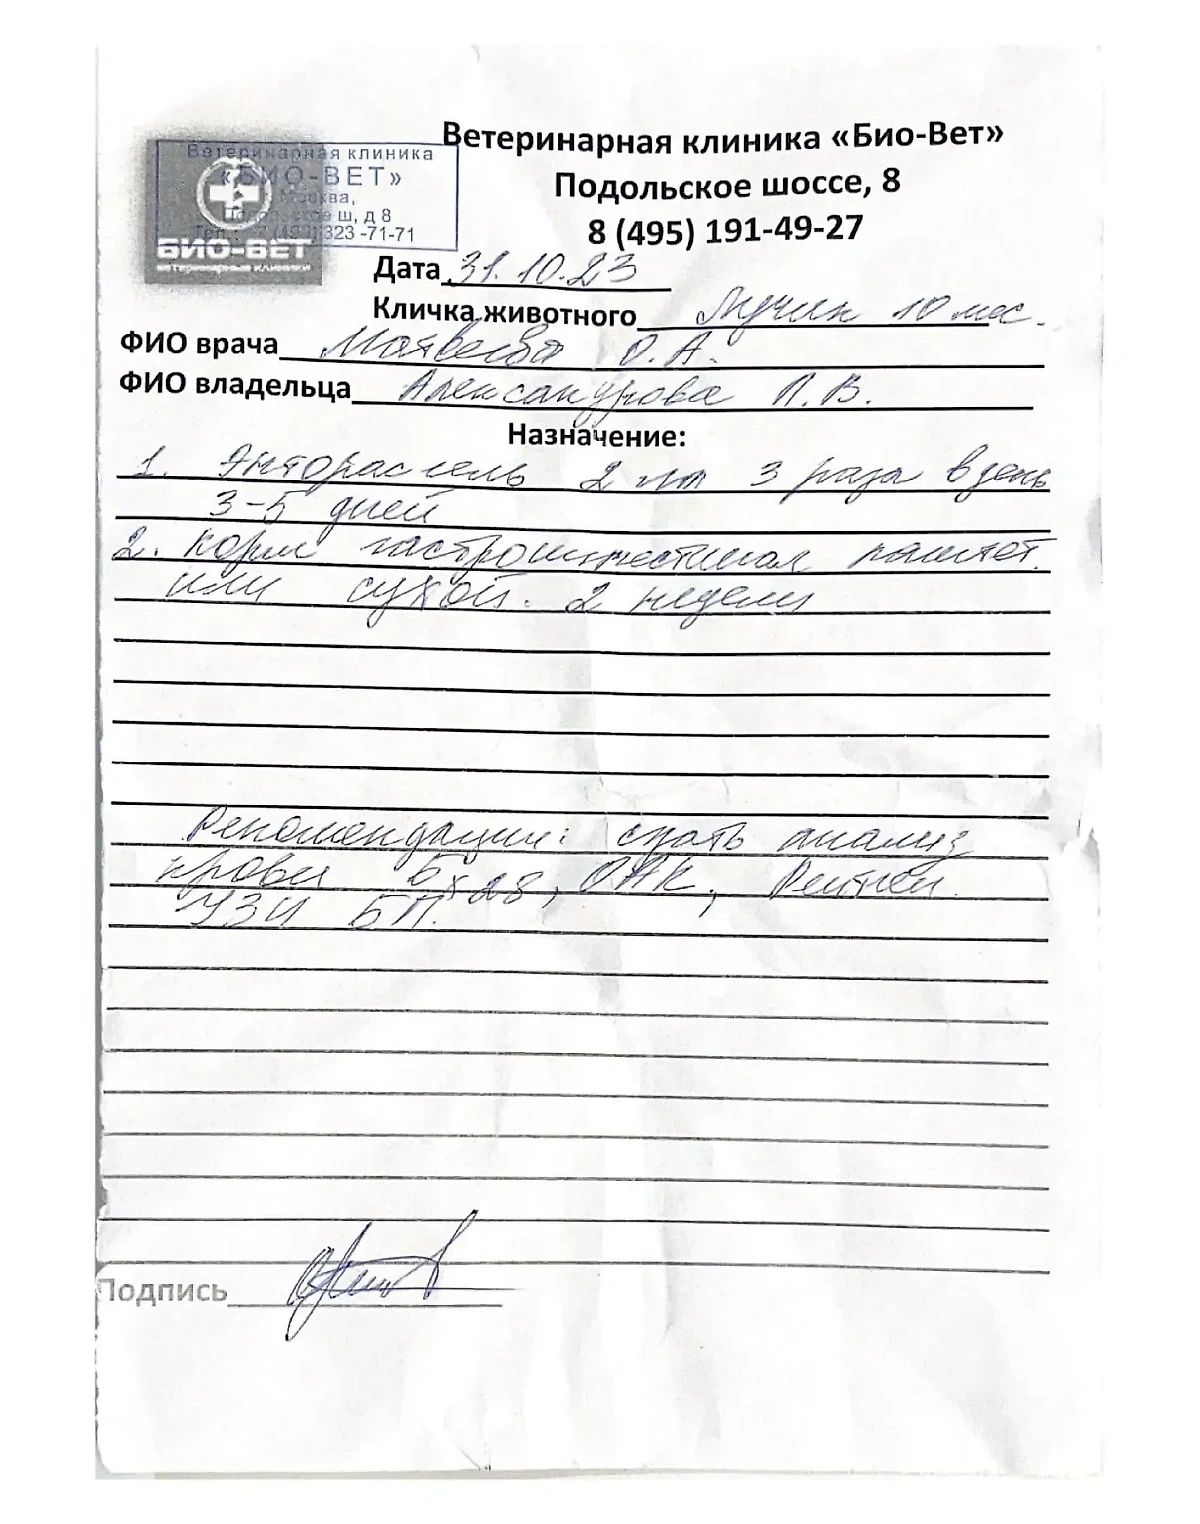 Ветеринарная клиника «Био-Вет»
Подольское шоссе, 8
8 (495) 191-49-27
Ветеринарная клиника
«БИО-ВЕТ»
Москва,
Подольское ш, д 8
323-71-71
БИО-ВЕТ
ветеринарные клиники
Дата 31.10.23
Кличка животного 10 мес.
ФИО врача Матвеева О. А.
ФИО владельца Александрова П. В.
Назначение:
1. 2 мл 3 раза в день
3-5 дней
2. корм гастроинтестинал паштет.
или сухой. 2 недели
Рекомендации: сдать анализ
крови Бх28, ОАК,
УЗИ БП.
Подпись